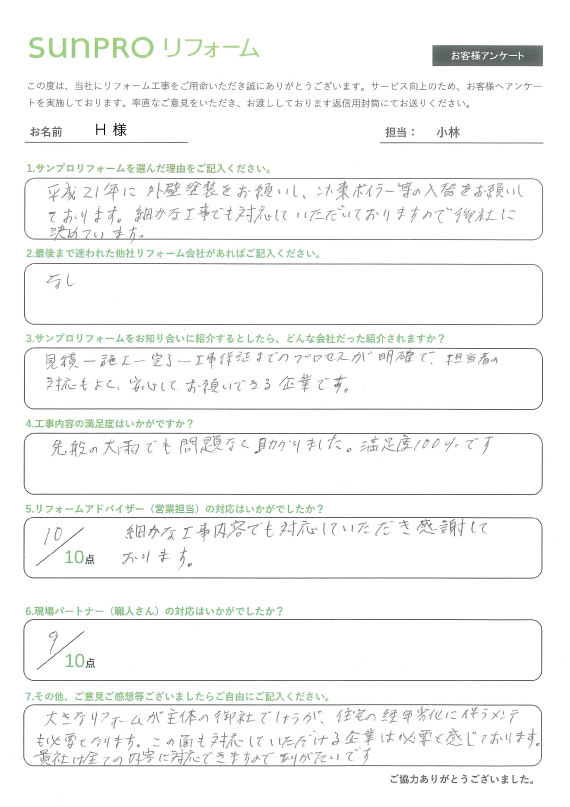 SUNPRO リフォーム
お客様アンケート
この度は、当社にリフォーム工事をご用命いただき誠にありがとうございます。サービス向上のため、お客様へアンケー
トを実施しております。率直なご意見をいただき、お渡ししております返信用封筒にてお送りください。
お名前 H 様 担当： 小林
1.サンプロリフォームを選んだ理由をご記入ください。
平成21年に外壁塗装をお願いし、以来ボイラー等の入替をお願いし
ております。細かな工事でも対応していただいておりますので御社に
決めています。
2.最後まで迷われた他社リフォーム会社があればご記入ください。
なし
3.サンプロリフォームをお知り合いに紹介するとしたら、どんな会社だった紹介されますか？
見積ー施工ー完了ー工事保証までのプロセスが明確で、担当者の
対応もよく、安心してお願いできる企業です。
4.工事内容の満足度はいかがですか？
先般の大雨でも問題なく助かりました。満足度100%です
5.リフォームアドバイザー（営業担当）の対応はいかがでしたか？
10/10点 細かな工事内容でも対応していただき感謝して
おります。
6.現場パートナー（職人さん）の対応はいかがでしたか？
9/10点
7.その他、ご意見ご感想等ございましたらご自由にご記入ください。
大きなリフォームが主体の御社でしょうが、住宅の経年劣化に伴うメンテ
も必要となります。この面も対応していただける企業は必要と感じております。
貴社は全ての内容に対応できますのでありがたいです
ご協力ありがとうございました。